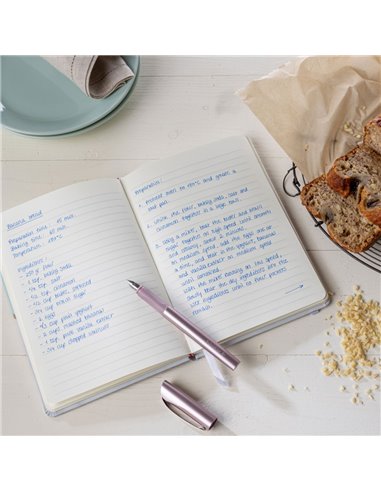 Banana bread
Preparation time: 15 min.
Baking time: 60 min.
Temperature: 180°C
Ingredients:
- 250 gr flour
- 1 tsp baking soda
- 1/4 tsp salt
- 1/2 tsp cinnamon
- 1/2 cup butter
- 3/4 cup brown sugar
- 2 eggs
- 1/2 cup plain yoghurt
- 2 cups mashed bananas
- 1 tsp pure vanilla extract
- 3/4 cup chopped walnuts
Preparation:
1. Preheat oven to 180°C and grease a
loaf pan.
2. Whisk the flour, baking soda, salt and
cinnamon together in a large bowl.
3. Using a mixer, beat the butter and brown
sugar together on high speed until smooth
and creamy, about 2 minutes.
on medium speed, add the eggs one at
a time, and beat in the yoghurt, bananas
and vanilla extract on medium speed
until combined.
4. With the mixer running on low speed,
slowly beat the dry ingredients into the
wet ingredients until no flour pockets
remain.